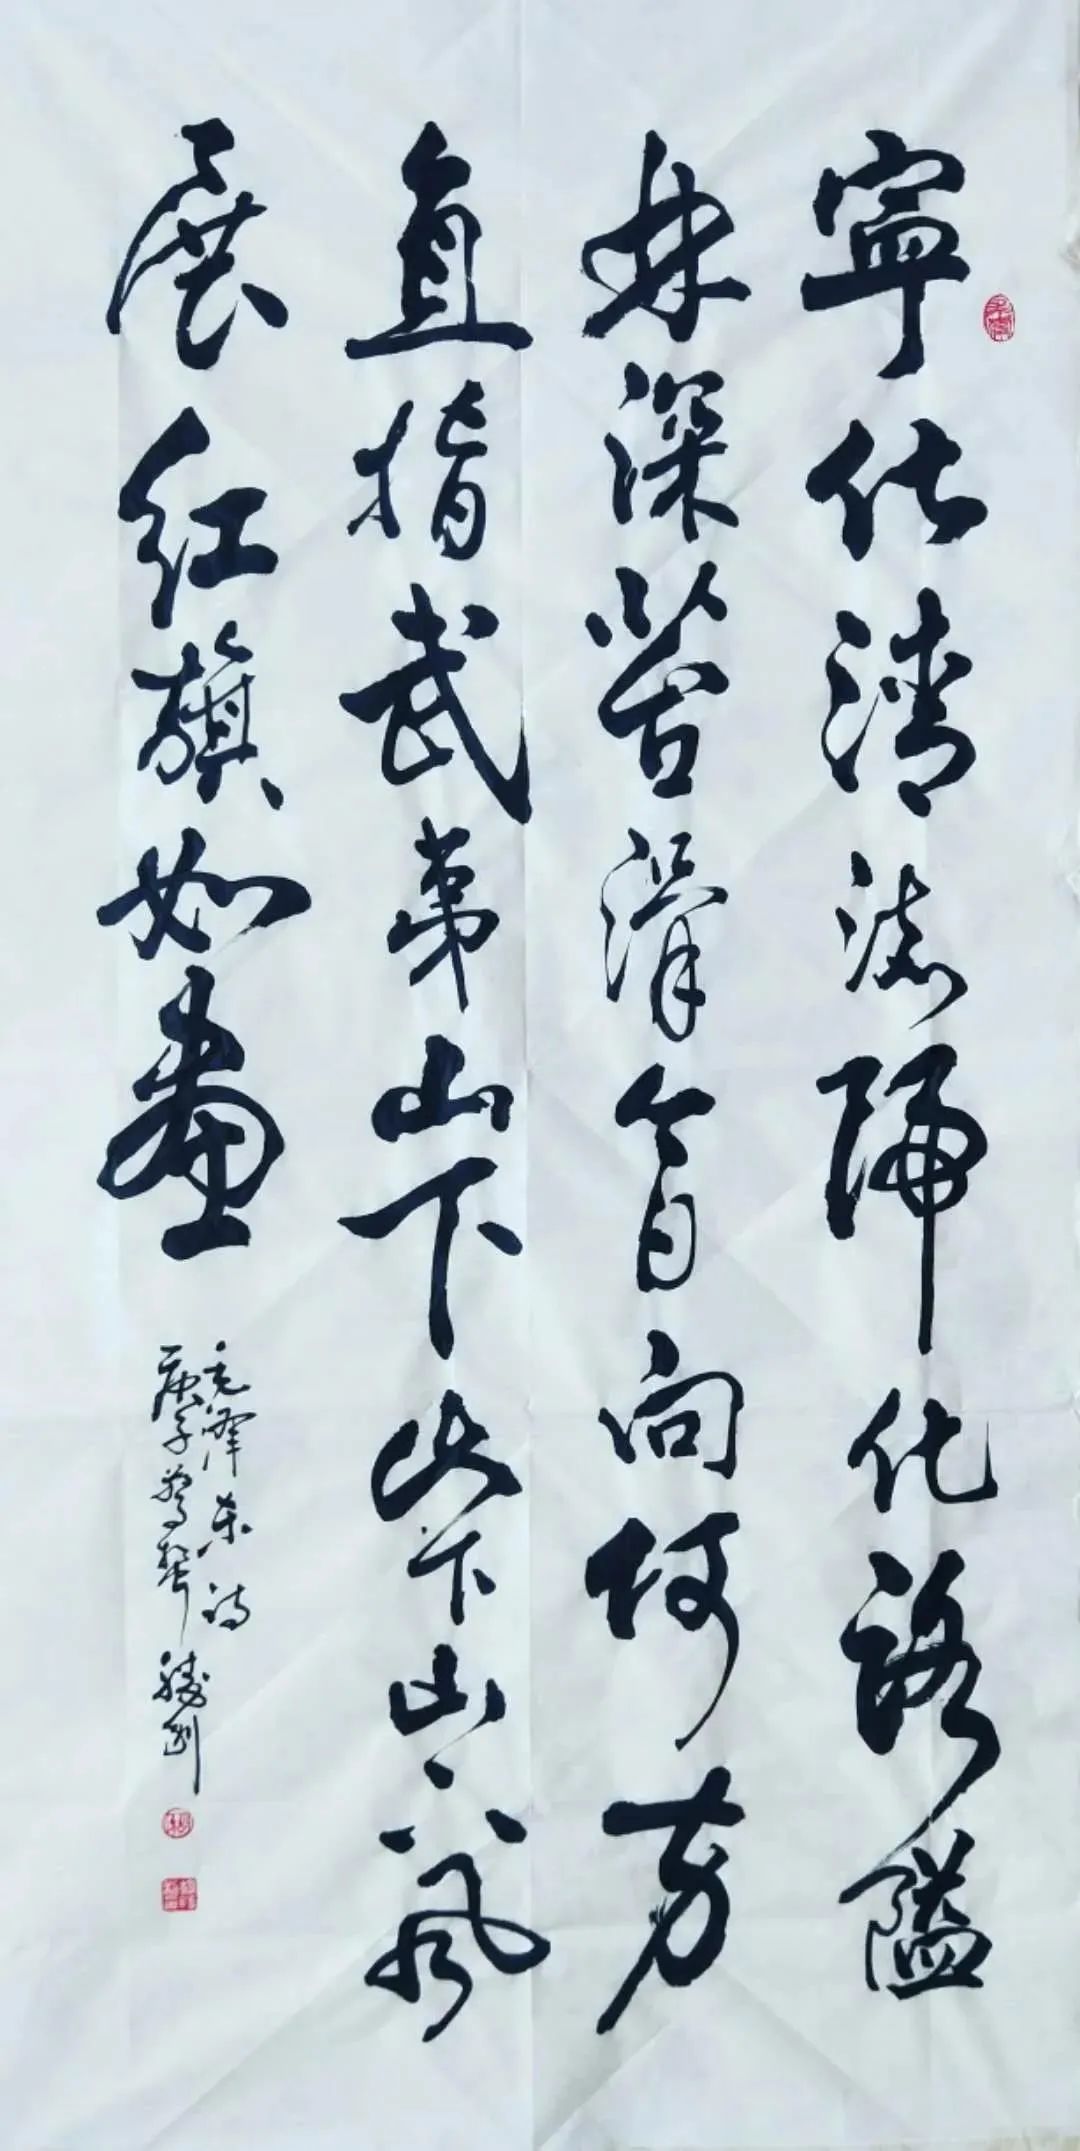 寧化清流歸化路隘
林深苔滑今日向何方
直指武夷山下山下山下風
展紅旗如畫
毛澤東詩
庚子